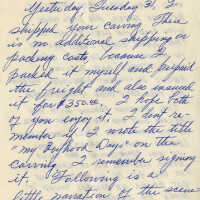 Yesterday Tuesday 31, I
shipped your carving. There
is no additional shipping or
packing costs, because I
packed it myself and prepaid
the freight and also insured
it for $350.00. I hope both
of you enjoy it. I don't re-
member if I wrote the title
"my Boyhood Days" on the
carving. I remember signing
it. Following is a
little narration of the scene